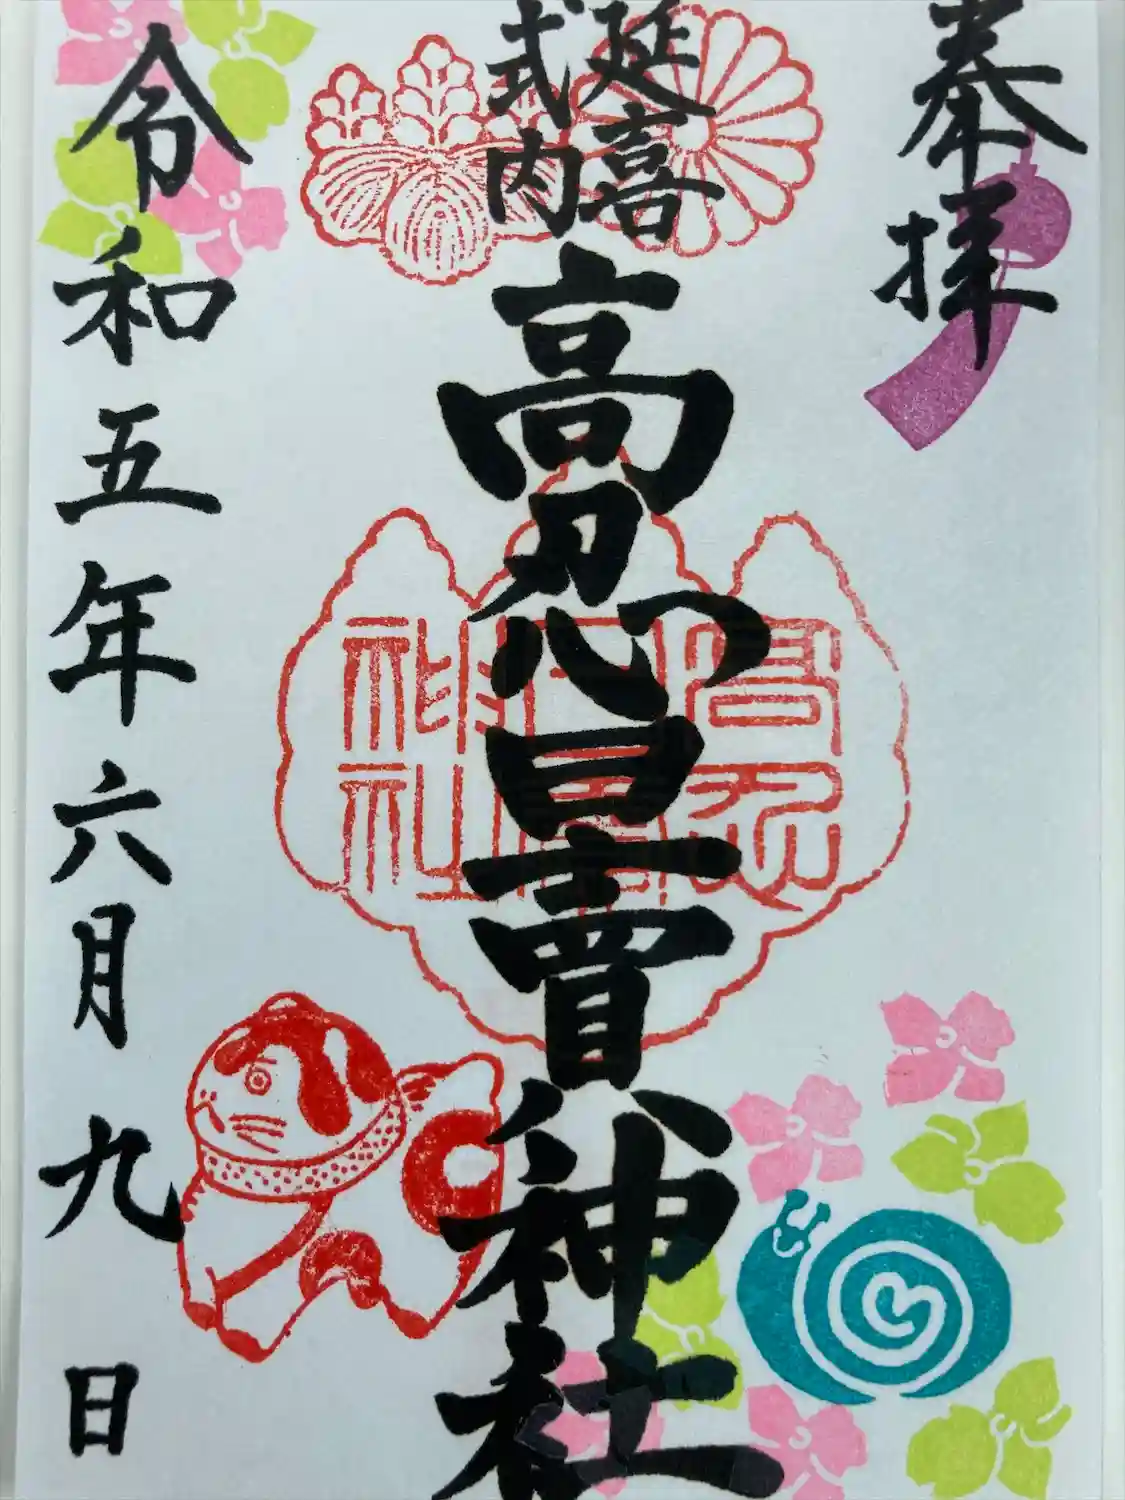 奉拝
延喜
式内
高忍日賣神社
高忍
神社
令和五年六月九日